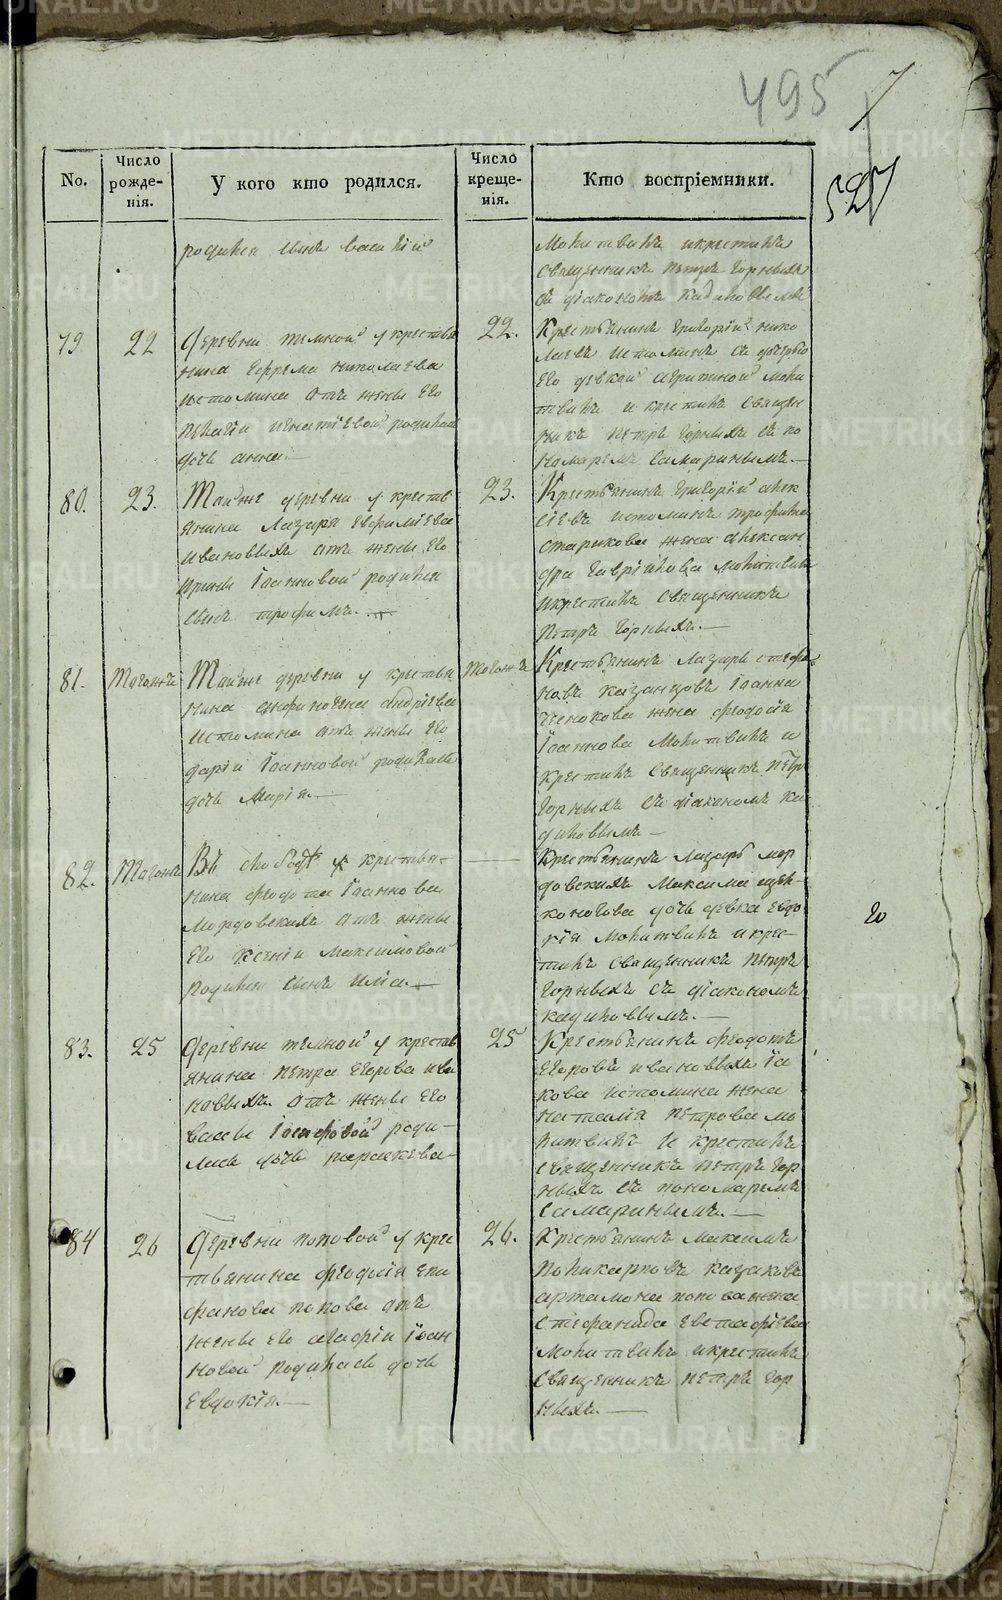 495
527
No.
Число рожде-нія.
У кого кто родился.
Число креще-нія.
Кто воспріемники.
родился сынъ василій
молитвилъ икрестилъ
священникъ петръ горныхъ
съ діакономъ кадиловымъ
79
22
Деревни темной у крестья
нина ефрема николаева
истомина отъ жены его
пелагіи игнатіевой родилась
дочь анна.—
22.
Крестьянинъ григорій нико
лаевъ истоминъ съ дочерью
его девкой агрипиной моли
твилъ и крестилъ священ
никъ петръ горныхъ съ по
номаремъ самаринымъ.—
80.
23.
Тайже деревни у кресть
янина лазаря евфиміева
ивановыхъ отъ жены его
ирины іоанновой родился
сынъ трофимъ.—
23.
Крестьянинъ григорій алек
сіевъ истоминъ трофима
старикова жена алексан
дра гаврійлова молитвилъ
икрестилъ священникъ
петръ горныхъ.—
81.
Тогожъ
Тайже деревни у крестья
нина анфиногена андріева
истомина отъ жены его
даріи іоанновой родилась
дочь марія.—
Тогожъ
Крестьянинъ лазарь стефа
новъ казанцовъ іоанна
ченокова жена феодосія
іоаннова молитвилъ и
крестилъ священникъ петръ
горныхъ съ діакономъ ка
диловымъ—
82.
Тогожъ
Въ слободѣ у крестья-
нина федота іоаннова
мордовскихъ отъ жены
его ксеніи максимовой
родился сынъ иліа.—
Крестьянинъ лазарь мор
довскихъ максима щел-
коногова дочь девка евдо
кія молитвилъ икрес-
тилъ священникъ петръ
горныхъ съ діакономъ
кадиловымъ.—
го
83.
25
Деревни темной у кресть
янина петра егорова ива
новыхъ отъ жены его
вассы іосифовой роди-
лась дочь параскева—
25
Крестьянинъ феодотъ
егоровъ ивановыхъ іа
кова истомина жена
наталія петрова мо
литвилъ и крестилъ
священникъ петръ гор
ныхъ съ пономаремъ
самаринымъ.—
84
26
Деревни поповой у крес
тьянина феодосія епи
фанова попова отъ
жены его агафіи іоан
новой родилась дочь
евдокія.—
26.
Крестьянинъ максимъ
поликарповъ казаковъ
артамона попова жена
стефанида евстафіева
молитвилъ икрестилъ
священникъ петръ гор
ныхъ.—
METRIKI.GASO-URAL.RU